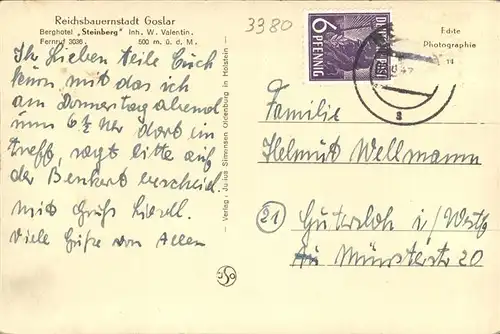 Reichsbauernstadt Goslar
Berghotel „Steinberg" Inh. W. Valentin.
Fernruf 3036. 500 m. ü. d. M.
Ihr Lieben teile Euch
kurz mit das ich
am Donnerstag abend
um 6½ Uhr dort im
treff, sagt bitte auf
der Benkert bescheid.
mit Gruß Liesel.
Viele Grüße von Allen
Verlag: Julius Simonsen Oldenburg in Holstein
3380
6
PFENNIG
DEUTSCHE POST
Echte
Photographie
a
Familie
Helmut Wellmann
21 Gütersloh i/Westf
Münsterstr 20